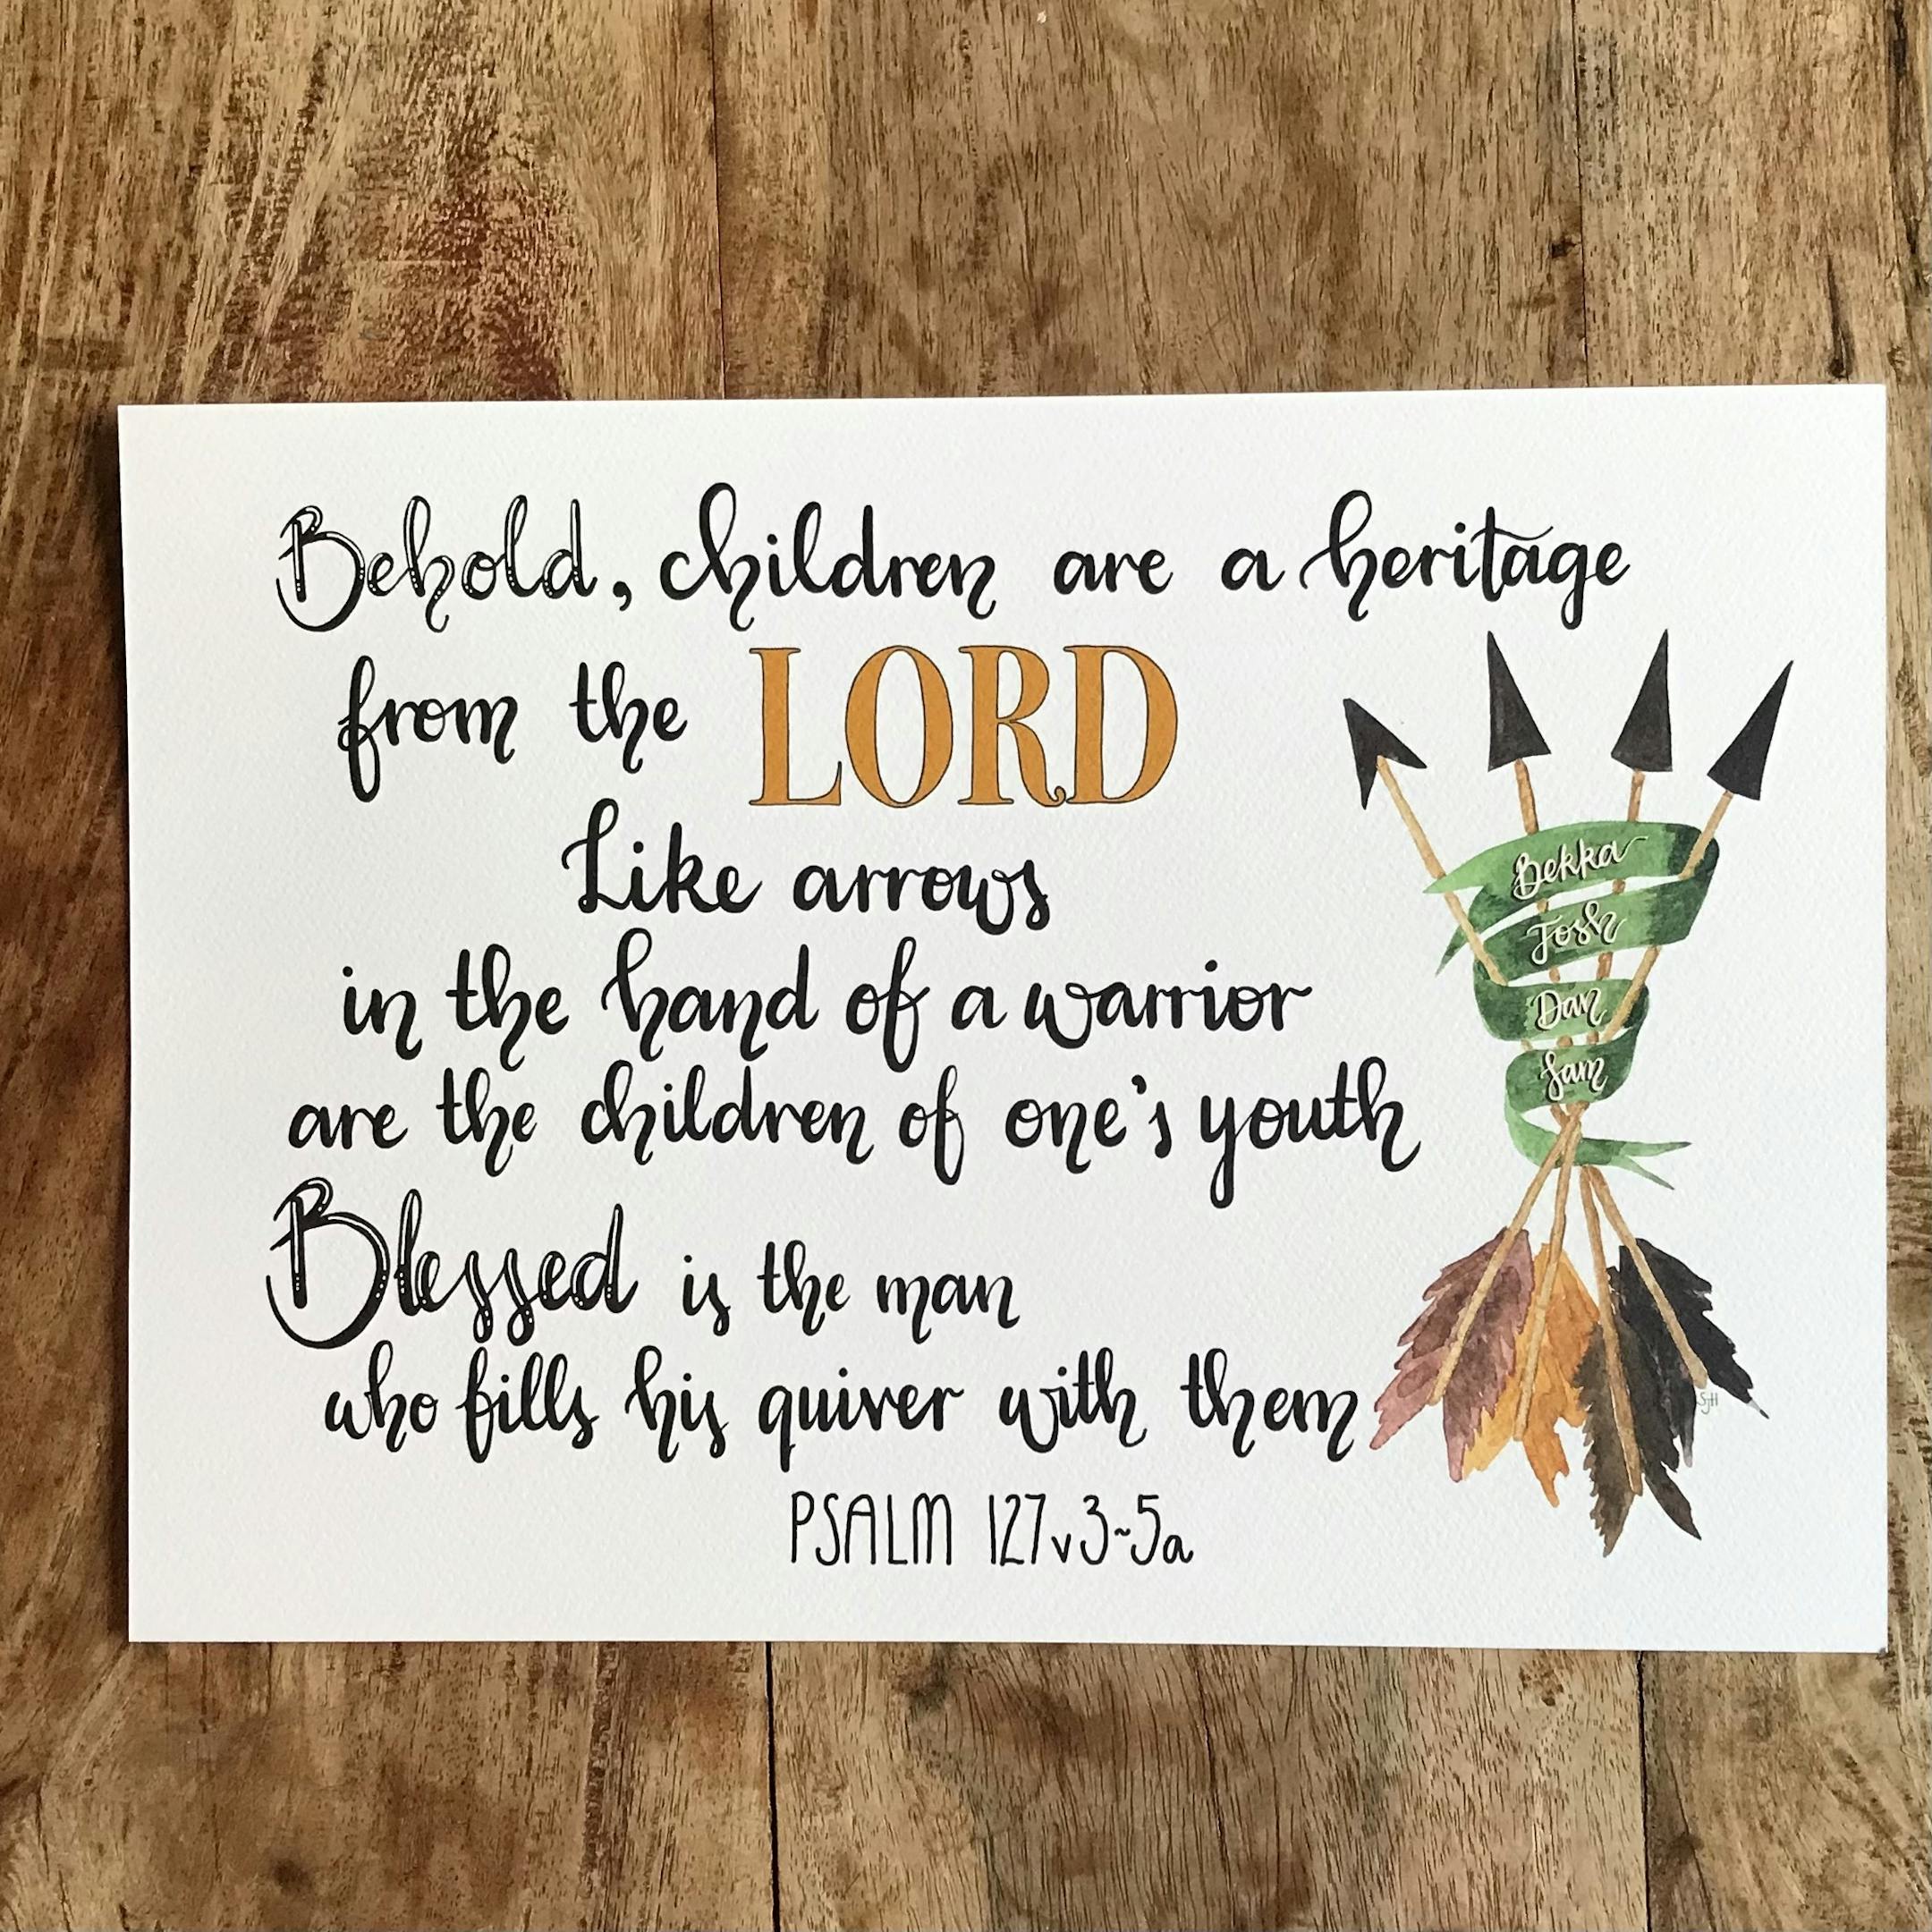 Behold, children are a heritage
from the LORD
Like arrows
in the hand of a warrior
are the children of one's youth
Blessed is the man
who fills his quiver with them
PSALM 127v3~5a
Bekka
Josh
Dan
Sam
SjH